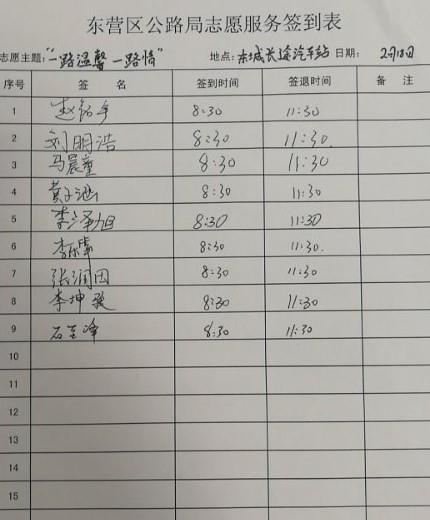 东营区公路局志愿服务签到表
志愿主题:"一路温馨一路情" 地点:东城长途汽车站 日期: 2月18日
序号 签 名 签到时间 签退时间 备 注
1 8:30 11:30
2 刘明浩 8:30 11:30.
3 马晨童 8:30 11:30
4 黄子涵 8:30 11:30
5 李泽旭 8:30 11:30
6 李 8:30 11:30.
7 张润田 8:30 11:30
8 李坤 8:30 11:30
9 石 8:30 11:30
10
11
12
13
14
15